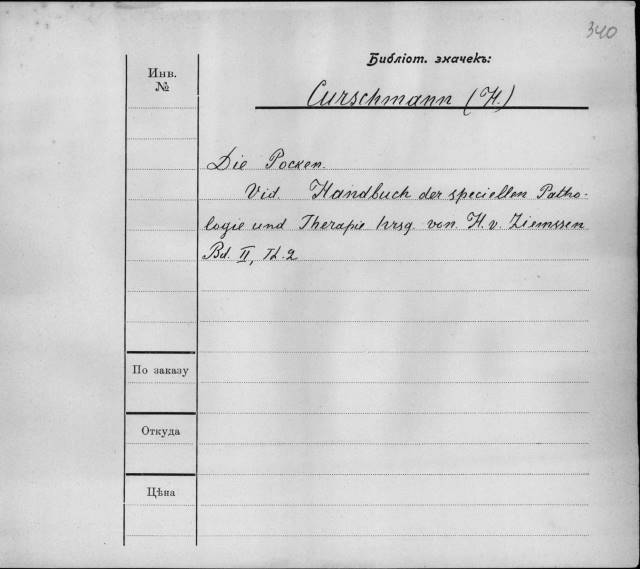 340
Библіот. значекъ:
Инв.
№
Curschmann (H.)
Die Pocken.
Vid. Handbuch der speciellen Patho-
logie und Therapie hrsg. von. H. v. Ziemssen
Bd. II, Th. 2
По заказу
Откуда
Цѣна